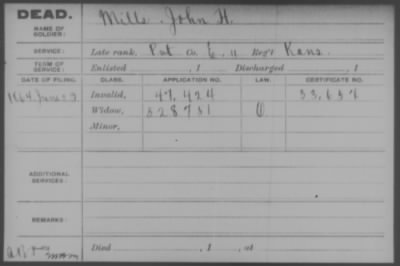 DEAD.
NAME OF SOLDIER: Mills John H.
SERVICE: Late rank, Pvt Co. E, 11 Reg't Kans
TERM OF SERVICE: Enlisted , 1 Discharged , 1
DATE OF FILING. CLASS. APPLICATION NO. LAW. CERTIFICATE NO.
1864 June 23 Invalid, 47,424 33,637
Widow, 528751
Minor,
ADDITIONAL SERVICES:
REMARKS:
Died , 1 , at